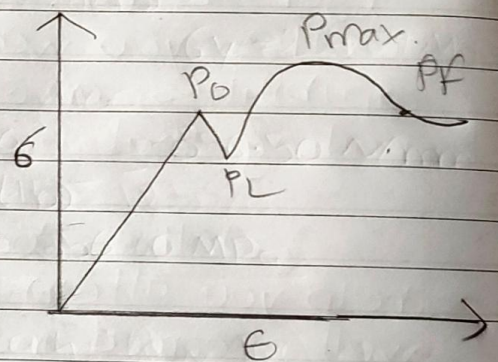 Pmax.
P0
PF
6
PL
ϵ